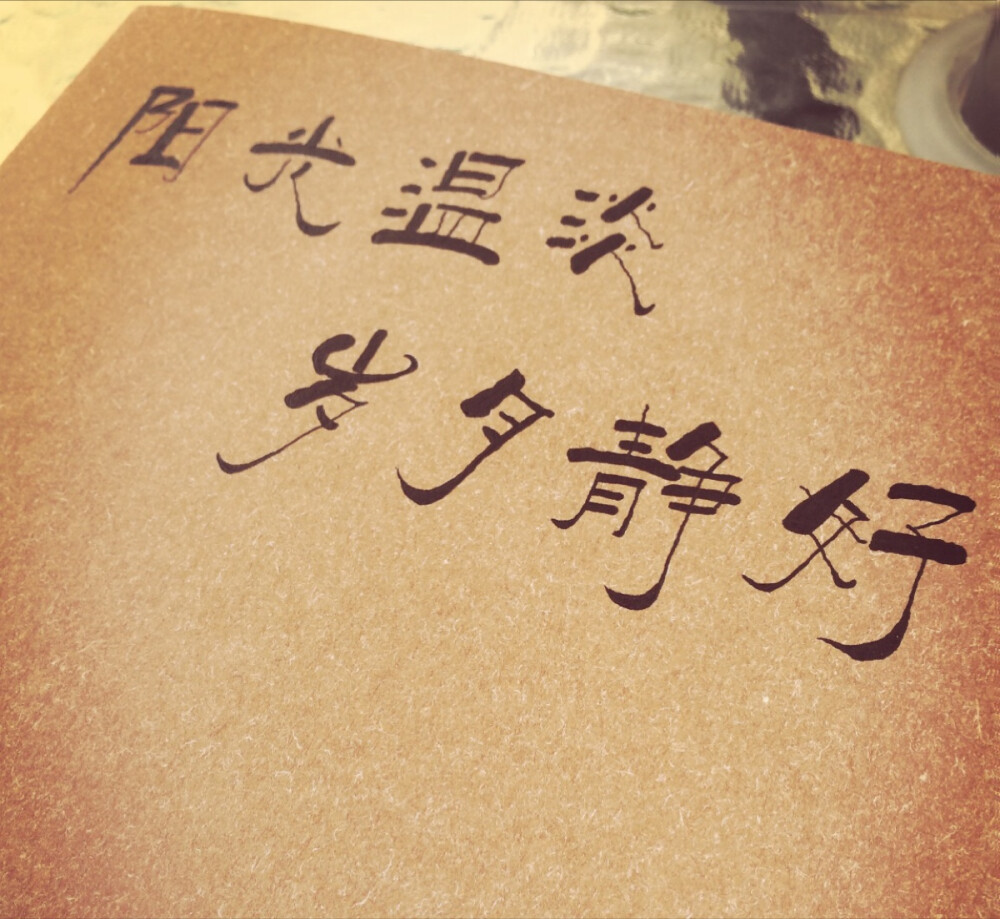 阳光温淡
岁月静好